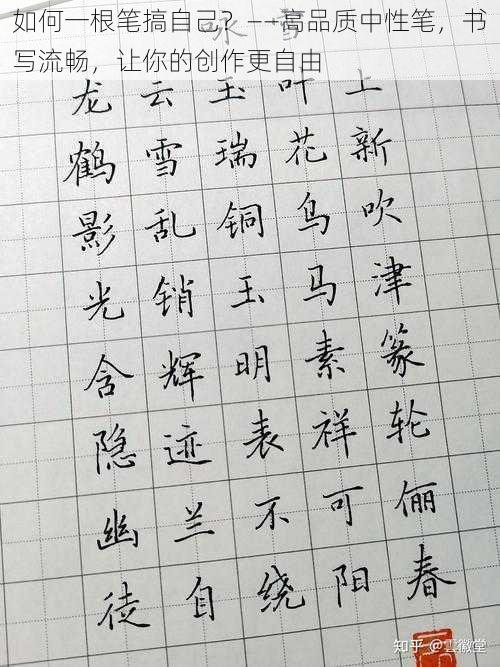 如何一根笔搞自己？——高品质中性笔，书
写流畅，让你的创作更自由
咏雪
龙云玉叶上
鹤雪瑞花新
影乱铜乌吹
光销玉马津
含辉明素篆
隐迹表祥轮
幽兰不可俪
徒自绕阳春
知乎 @雲徽堂